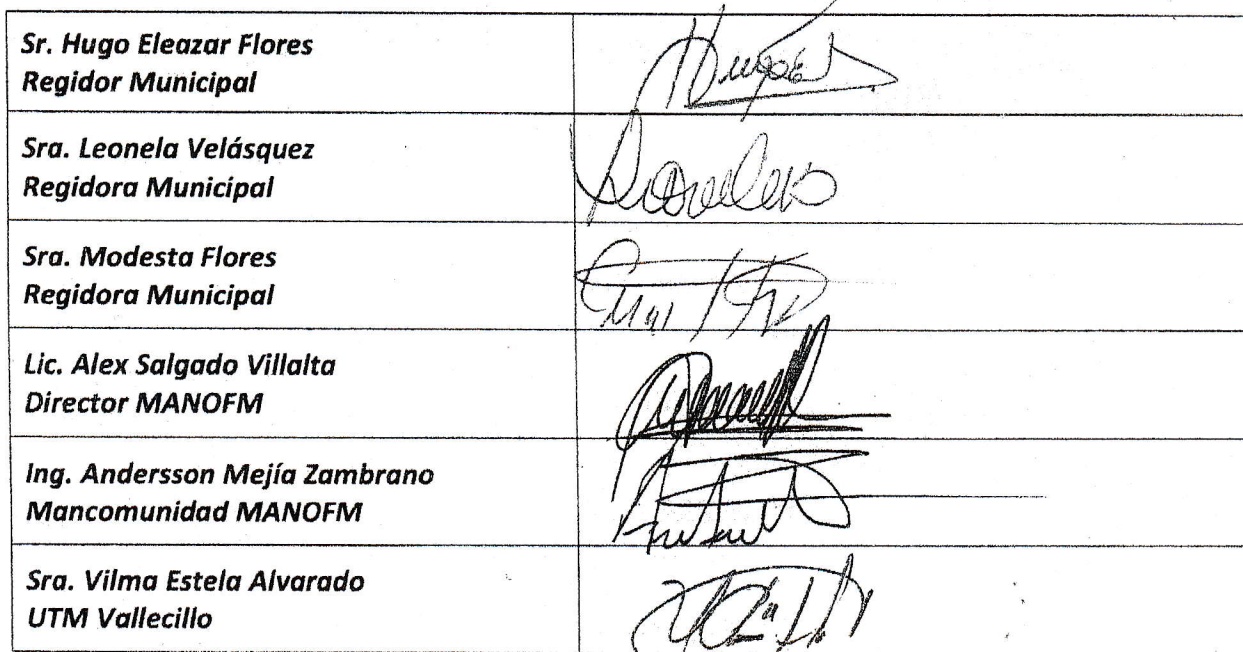 Sr. Hugo Eleazar Flores
Regidor Municipal
Sra. Leonela Velásquez
Regidora Municipal
Sra. Modesta Flores
Regidora Municipal
Lic. Alex Salgado Villalta
Director MANOFM
Ing. Andersson Mejía Zambrano
Mancomunidad MANOFM
Sra. Vilma Estela Alvarado
UTM Vallecillo